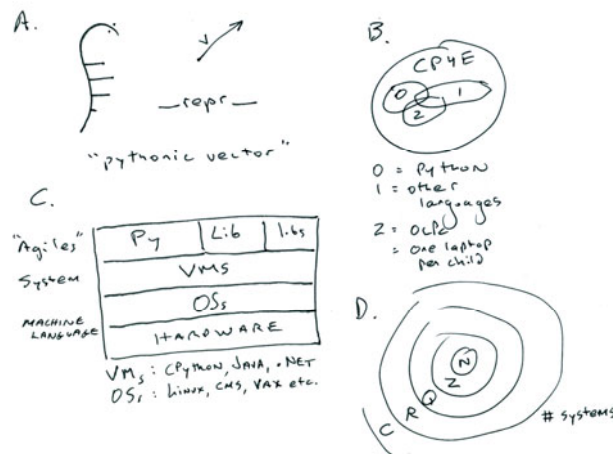 A.
v
__repr__
"pythonic vector"
B.
CP4E
0 1
2
0 = Python
1 = other
languages
2 = OLPC
= one laptop
per child
C.
"Agiles" Py Lib libs
System VMs
OSs
MACHINE
LANGUAGE HARDWARE
VMs: CPython, JAVA, .NET
OSs: Linux, CMS, VAX etc.
D.
N
Z
Q
R
C
# systems